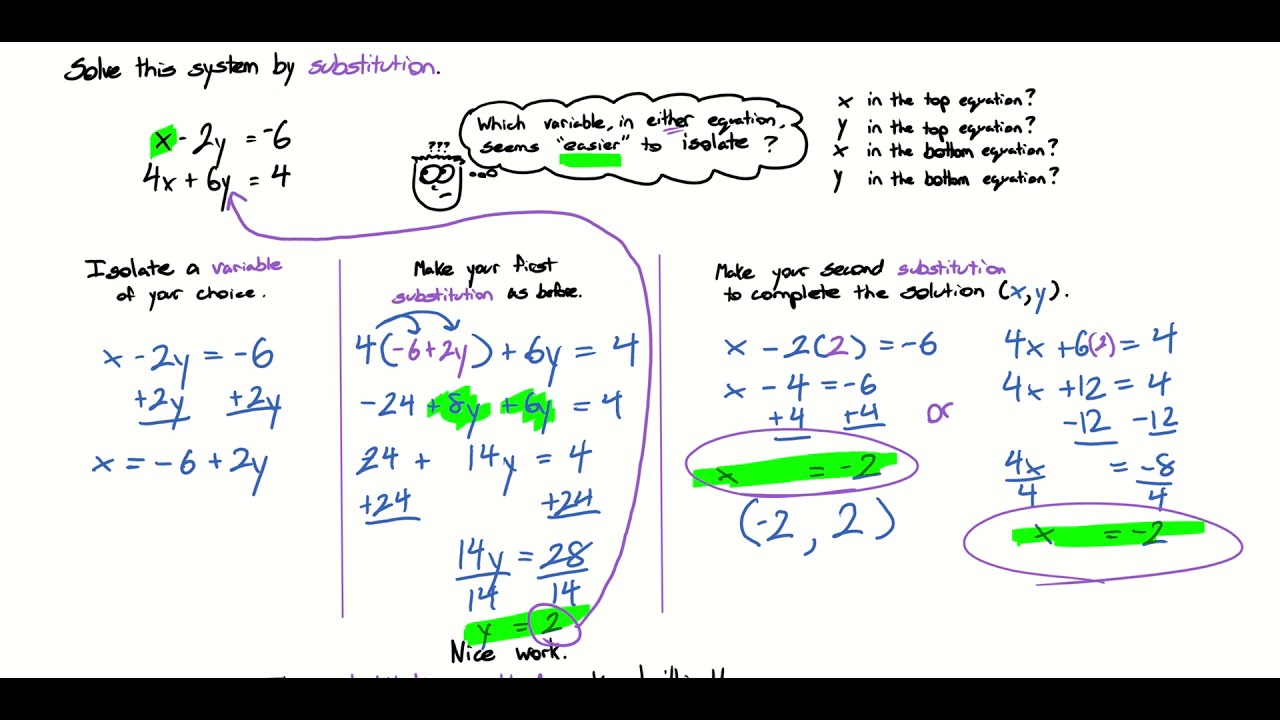 Solve this system by substitution.
x - 2y = -6
4x + 6y = 4
???
Which variable, in either equation,
seems "easier" to isolate ?
x in the top equation?
y in the top equation?
x in the bottom equation?
y in the bottom equation?
Isolate a variable
of your choice.
x - 2y = -6
+2y +2y
x = -6 + 2y
Make your first
substitution as before.
4(-6+2y) + 6y = 4
-24 +8y +6y = 4
24 + 14y = 4
+24 +24
14y = 28
14 14
y = 2
Nice work.
Make your second substitution
to complete the solution (x,y).
x - 2(2) = -6
x - 4 = -6
+4 +4
x = -2
(-2, 2)
or
4x + 6(2) = 4
4x + 12 = 4
-12 -12
4x = -8
4 4
x = -2